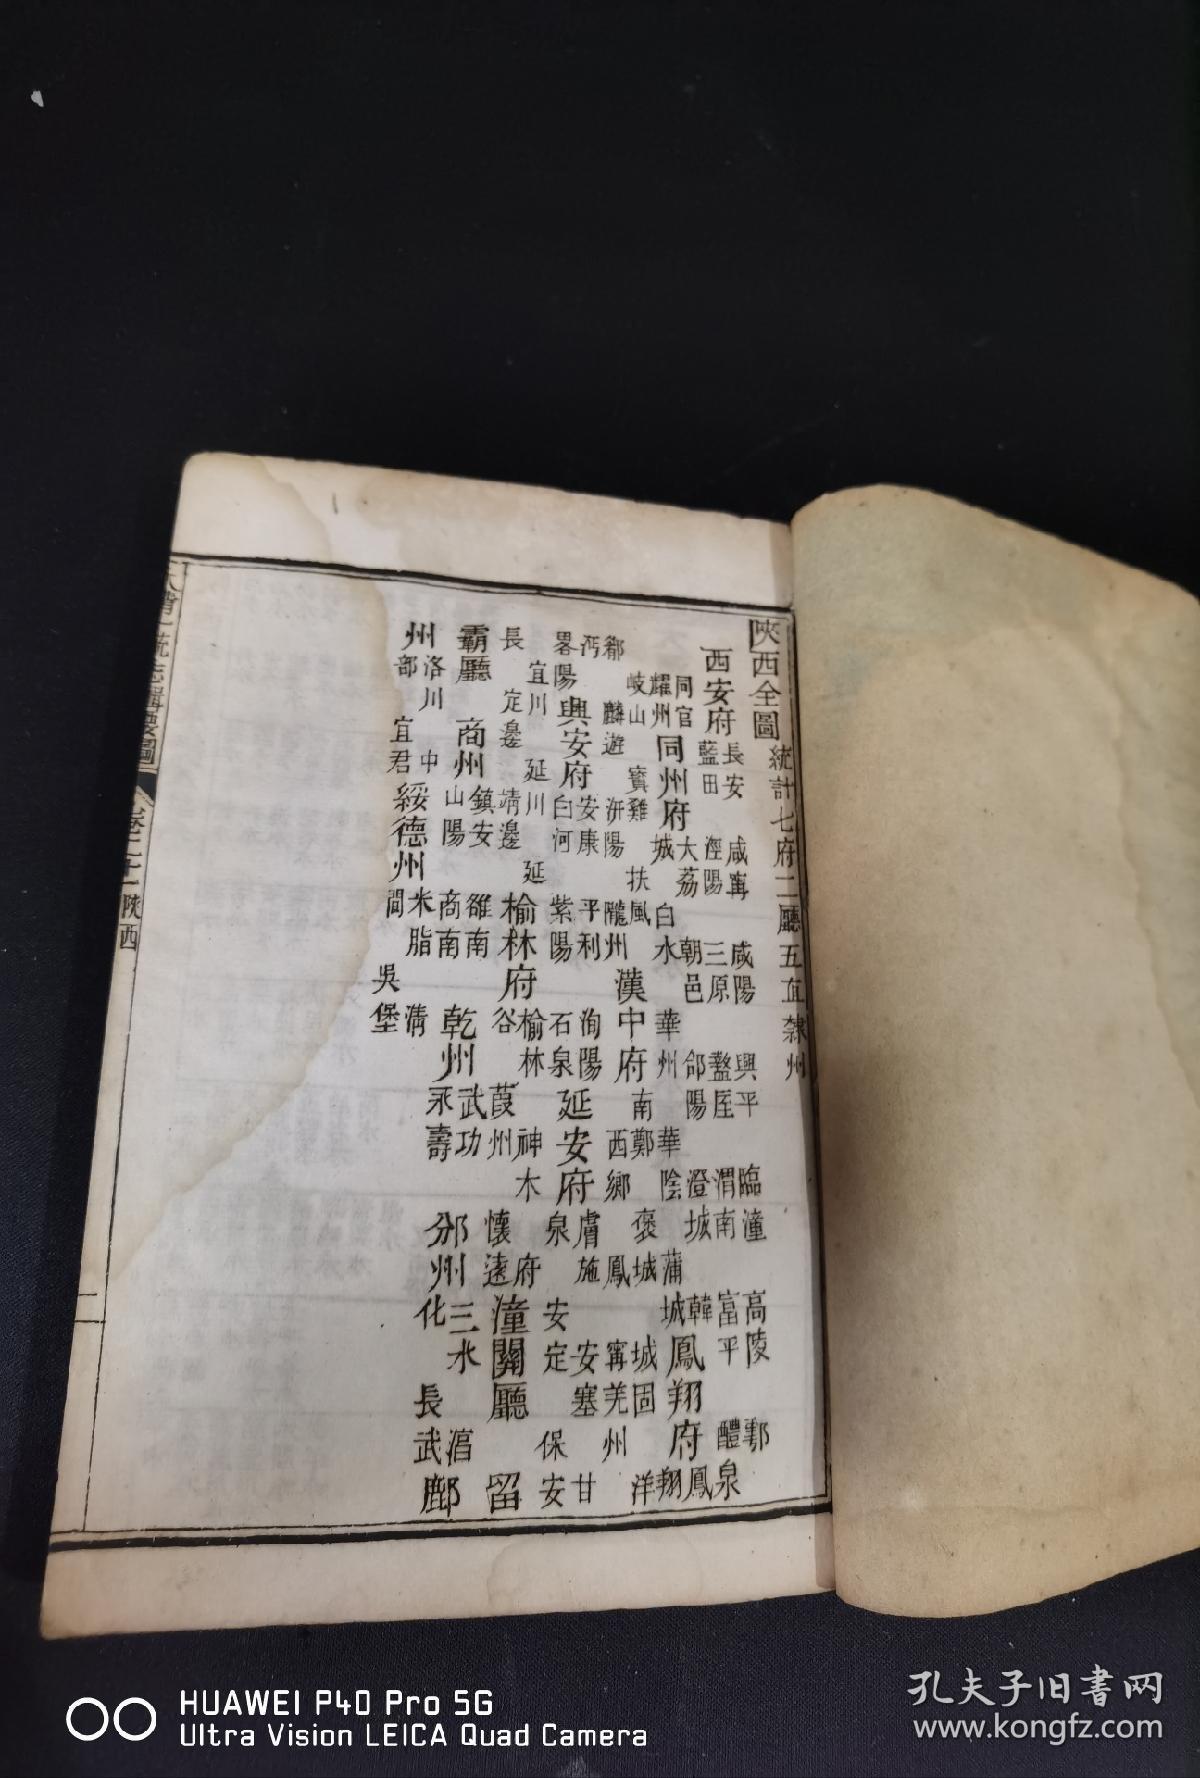 陝西全圖 統計七府二廳五直隸州
西安府 長安 咸寧 咸陽 興平 臨潼 高陵 鄠
藍田 涇陽 三原 盩厔 渭南 富平 醴泉
同官
耀州 同州府 大荔 朝邑 郃陽 澄城 韓
城 白水 華州 華陰 蒲城 鳳翔府 鳳
翔
岐山 寶雞 扶風
郿 麟遊 汧陽 隴州 漢中府 南鄭 褒城 城固 洋
西鄉 鳳 寧羌州
沔
畧陽 興安府 安康 平利 洵陽
白河 紫陽 石泉 延安府 膚施 安塞 甘
泉 安定 保安
宜川 延川 延
長 定邊 靖邊 榆林府 榆林 神木 府
谷 葭州 懷遠 潼關廳 留
霸廳 商州 鎮安 雒南
山陽 商南 乾州 武功
永壽 邠州 三水 湻
化 長武 鄜
州 洛川 中
部 宜君 綏德州 米脂 清
間 吳堡
大清一統志輯要圖 卷二十一 陝西
HUAWEI P40 Pro 5G
Ultra Vision LEICA Quad Camera
孔夫子旧书网
www.kongfz.com